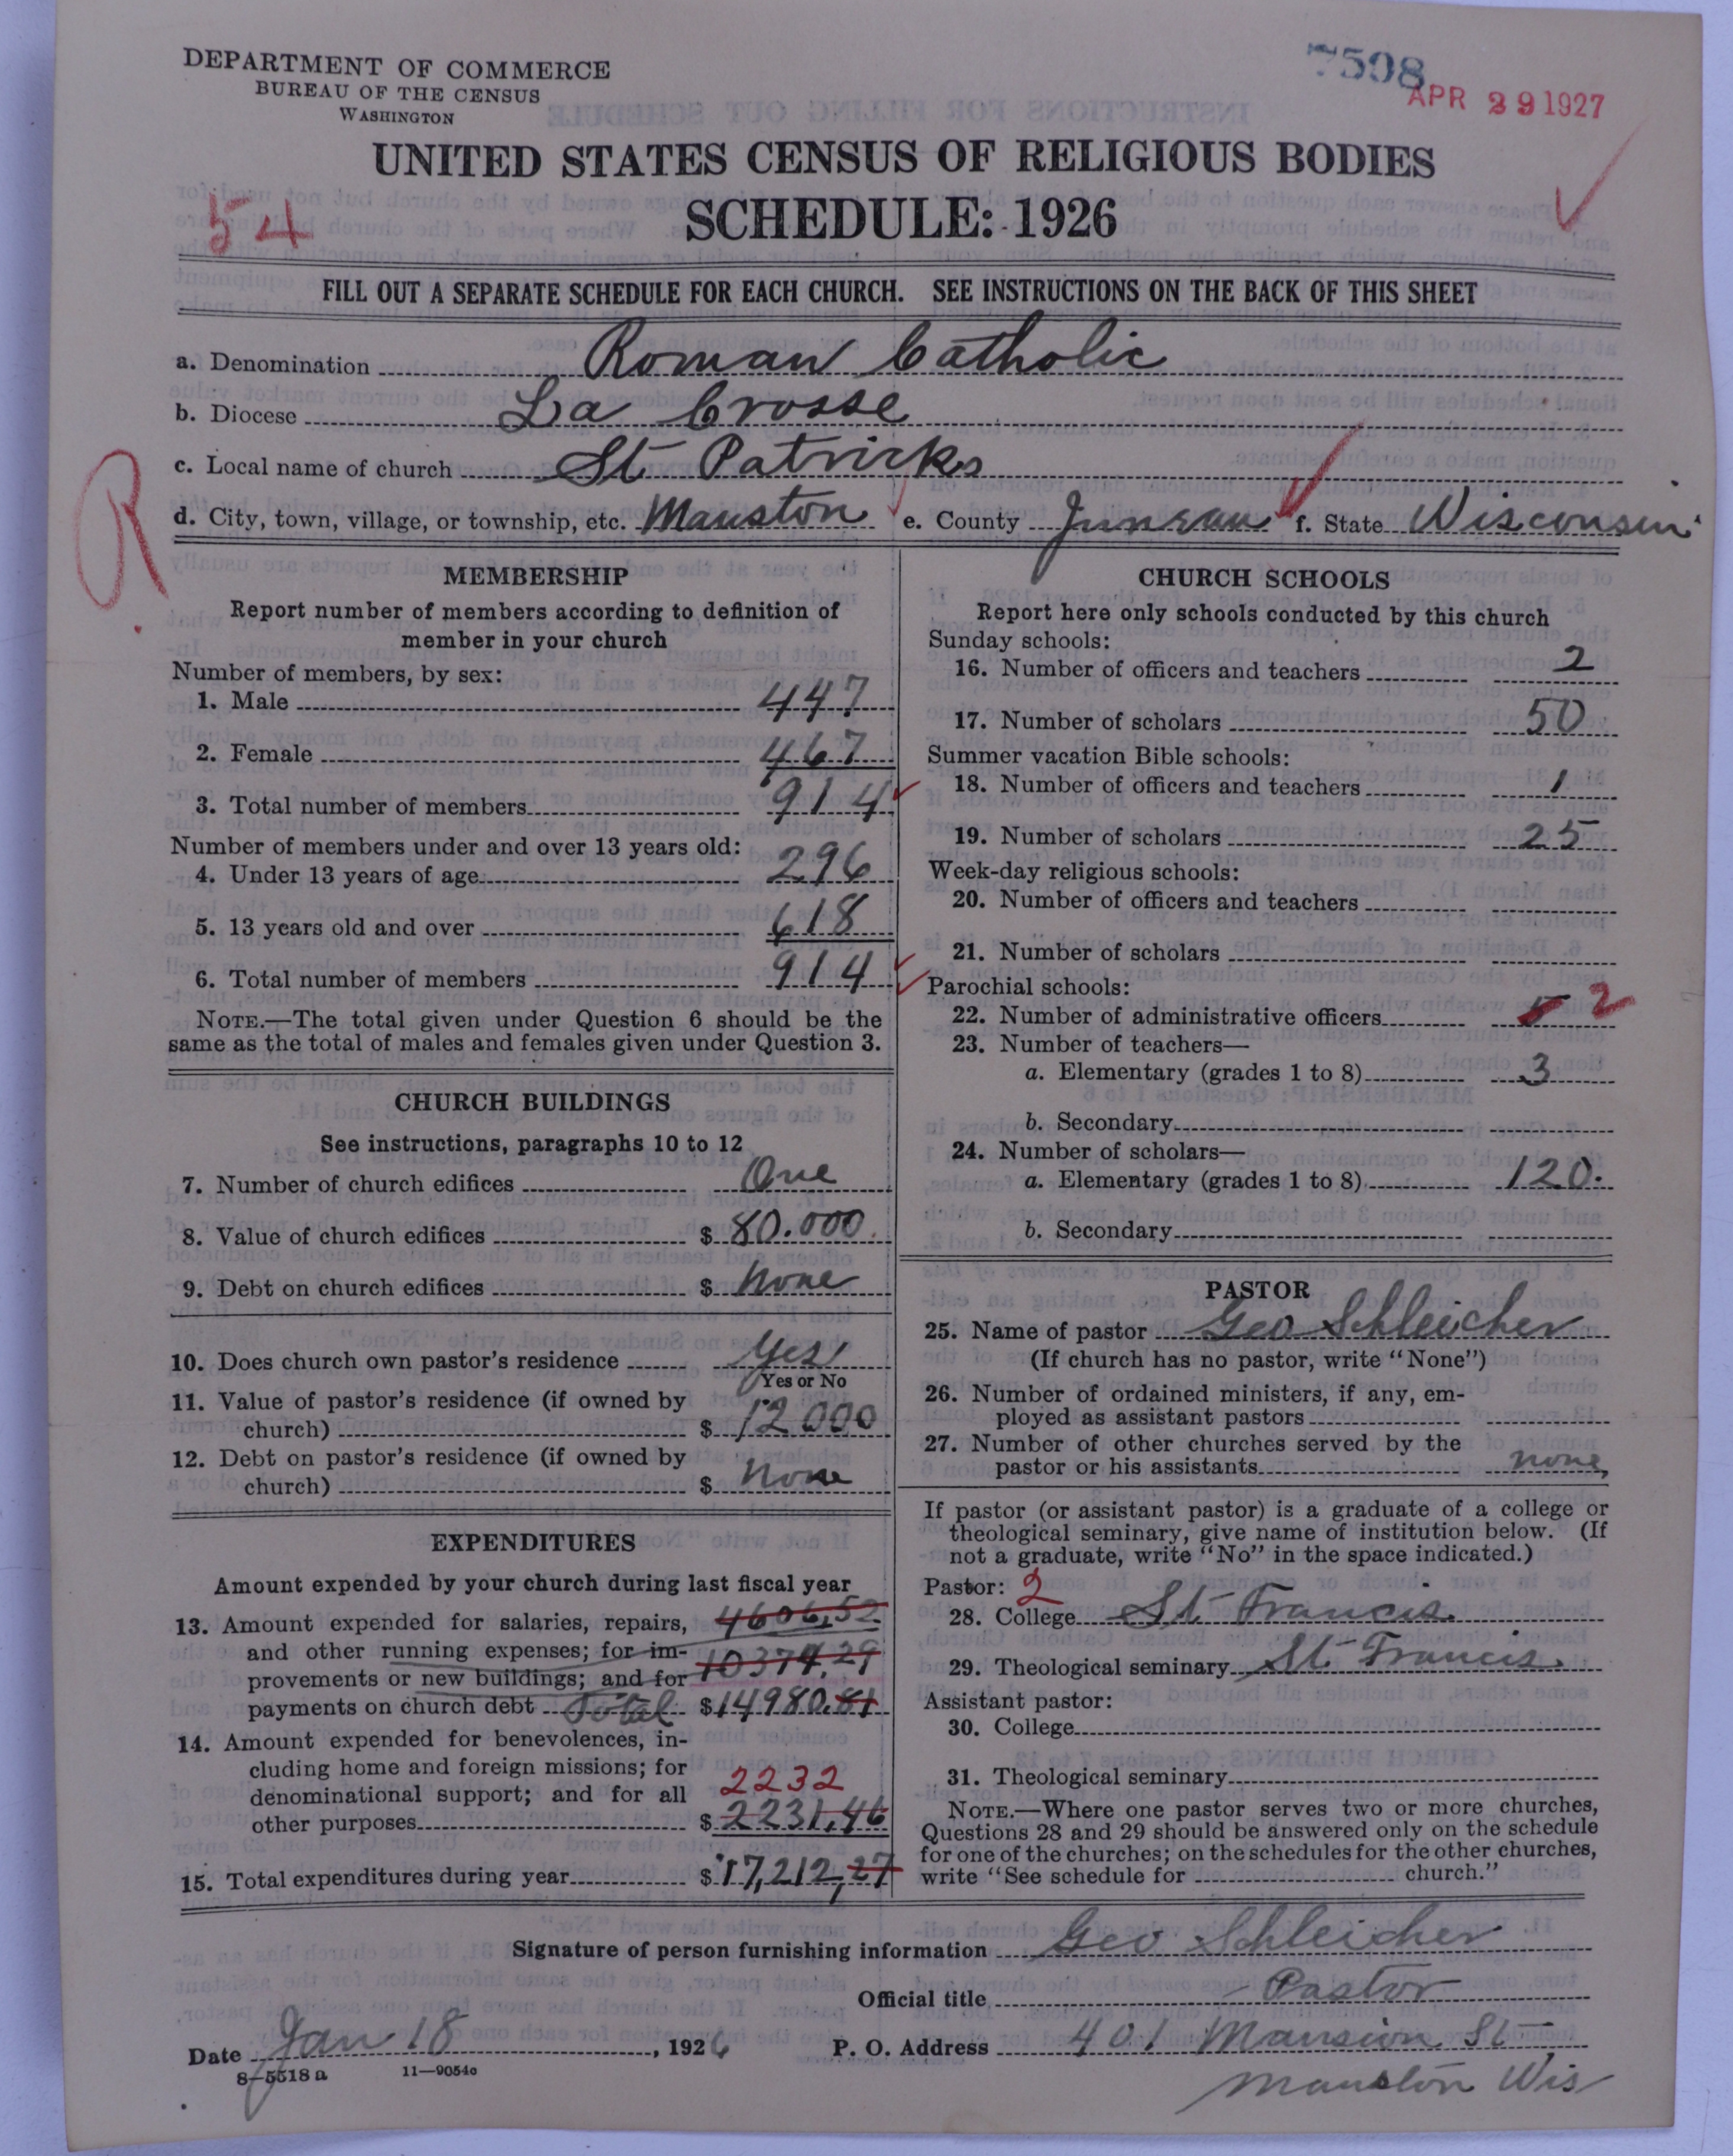 DEPARTMENT OF COMMERCE
BUREAU OF THE CENSUS
WASHINGTON
7598
APR 29 1927
UNITED STATES CENSUS OF RELIGIOUS BODIES
SCHEDULE: 1926
54
FILL OUT A SEPARATE SCHEDULE FOR EACH CHURCH. SEE INSTRUCTIONS ON THE BACK OF THIS SHEET
a. Denomination Roman Catholic
b. Diocese La Crosse
c. Local name of church St Patricks
d. City, town, village, or township, etc. Mauston e. County Juneau f. State Wisconsin
R
MEMBERSHIP
Report number of members according to definition of
member in your church
Number of members, by sex:
1. Male 447
2. Female 467
3. Total number of members 914
Number of members under and over 13 years old:
4. Under 13 years of age 296
5. 13 years old and over 618
6. Total number of members 914
NOTE.—The total given under Question 6 should be the
same as the total of males and females given under Question 3.
CHURCH BUILDINGS
See instructions, paragraphs 10 to 12
7. Number of church edifices One
8. Value of church edifices $ 80.000
9. Debt on church edifices $ None
10. Does church own pastor's residence Yes
Yes or No
11. Value of pastor's residence (if owned by
church) $ 12000
12. Debt on pastor's residence (if owned by
church) $ None
EXPENDITURES
Amount expended by your church during last fiscal year
13. Amount expended for salaries, repairs, 4606,52
and other running expenses; for im-
provements or new buildings; and for 10374,29
payments on church debt Total $14980.81
14. Amount expended for benevolences, in-
cluding home and foreign missions; for
denominational support; and for all 2232
other purposes $ 2231,46
15. Total expenditures during year $ 17,212,27
CHURCH SCHOOLS
Report here only schools conducted by this church
Sunday schools:
16. Number of officers and teachers 2
17. Number of scholars 50
Summer vacation Bible schools:
18. Number of officers and teachers 1
19. Number of scholars 25
Week-day religious schools:
20. Number of officers and teachers
21. Number of scholars
Parochial schools:
22. Number of administrative officers 2
23. Number of teachers—
a. Elementary (grades 1 to 8) 3
b. Secondary
24. Number of scholars—
a. Elementary (grades 1 to 8) 120.
b. Secondary
PASTOR
25. Name of pastor Geo Schleicher
(If church has no pastor, write "None")
26. Number of ordained ministers, if any, em-
ployed as assistant pastors
27. Number of other churches served by the
pastor or his assistants none,
If pastor (or assistant pastor) is a graduate of a college or
theological seminary, give name of institution below. (If
not a graduate, write "No" in the space indicated.)
Pastor: 2
28. College St Francis.
29. Theological seminary St. Francis.
Assistant pastor:
30. College
31. Theological seminary
NOTE.—Where one pastor serves two or more churches,
Questions 28 and 29 should be answered only on the schedule
for one of the churches; on the schedules for the other churches,
write "See schedule for church."
Signature of person furnishing information Geo Schleicher
Official title Pastor
Date Jan 18, 1926 P. O. Address 401 Mansion St
8—5518 a 11—9054c
Mauston Wis